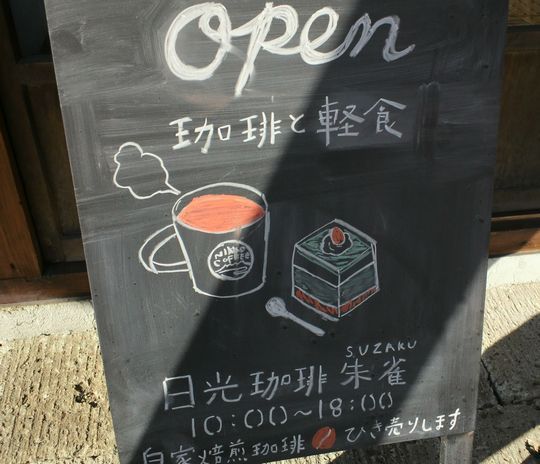 open
珈琲と軽食
NIKKO
COFFEE
SUZAKU
日光珈琲 朱雀
10:00~18:00
自家焙煎珈琲 ひき売りします